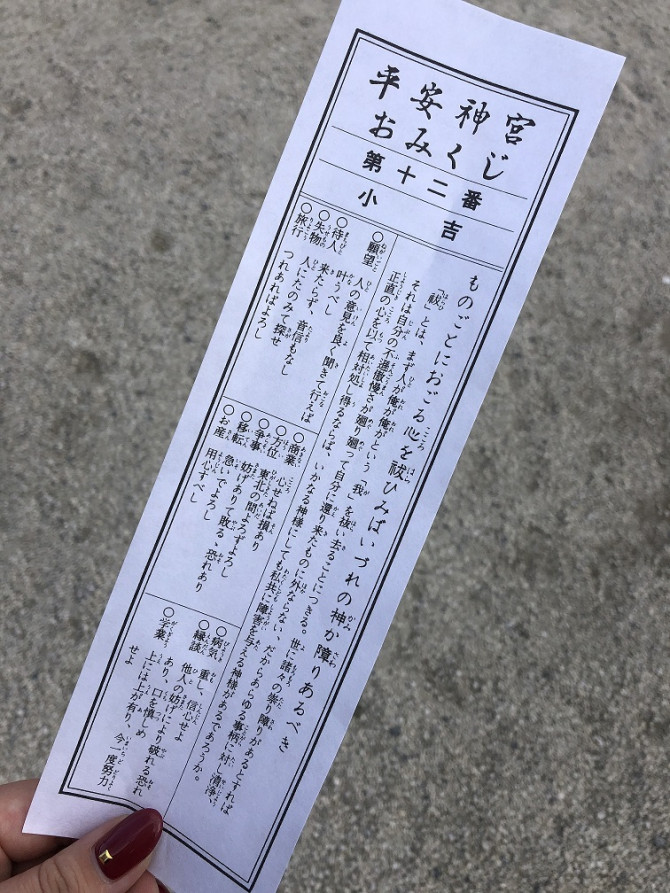 平安神宮
おみくじ
第十二番
小吉
ものごとにおごる心を祓ひみばいづれの神か障りあるべき
「祓」とは、まず人が俺が俺がという「我」を祓い去ることにつきる。世に諸々の祟り障りがあるとすれば
それは自分の不遜傲慢さが廻り廻って自分に還り来たものに外ならない、だからあらゆる事柄に対し清浄
正直の心を以て相対処し得るならば、いかなる神様にしても私共に障害を与える神様があるであろうか。
○願望 人の意見を良く聞きて行えば
叶うべし
○待人 来たらず、音信もなし
○失物 人にたのみて探せ
○旅行 つれあればよろし
○商業 心せねば損あり
○方位 東北の間よろずよろし
○争事 妨げありて敗る、恐れあり
○移転 急いでよろし
○お産 用心すべし
○病気 重し、信心せよ
○縁談 他人の妨げにより破れる恐れ
あり、口を慎しめ
○学業 上には上が有り、今一度努力
せよ